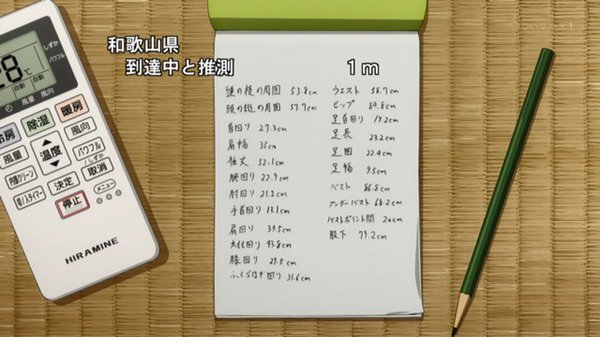 和歌山県
到達中と推測
1m
頭の縦の周囲 53.8cm
頭の横の周囲 57.7cm
首回り 29.3cm
肩幅 35cm
袖丈 52.1cm
腕回り 27.9cm
肘回り 21.2cm
手首回り 13.1cm
肩回り 39.5cm
太もも回り 43.8cm
膝回り 29.5cm
ふくらはぎ回り 31.6cm
ウエスト 58.7cm
ヒップ 84.8cm
足首回り 19.2cm
足長 23.2cm
足囲 22.4cm
足幅 9.5cm
バスト 86.8cm
アンダーバスト 68.2cm
バストポイント間 20cm
股下 79.2cm
8℃
しずか
パワフル
自動
自動 自動
風量 風向
冷房 除湿 暖房
風量 温度 風向
パワフル/しずか
内部クリーン 決定 取消
切/入タイマー 停止 メニュー
HIRAMINE